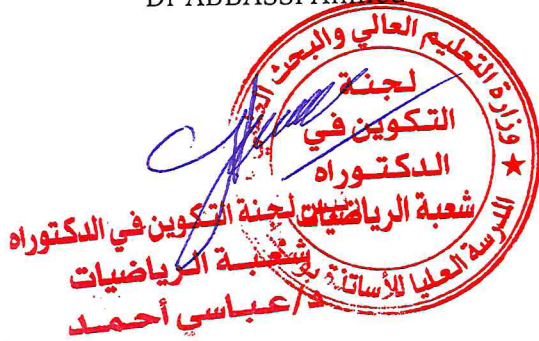 Dr ABBASSI Ahmed
وزارة التعليم العالي والبحث
المدرسة العليا للأساتذة
لجنة
التكوين في
الدكتوراه
شعبة الرياضيات
لجنة التكوين في الدكتوراه
شعبة الرياضيات
د/عباسي أحمد